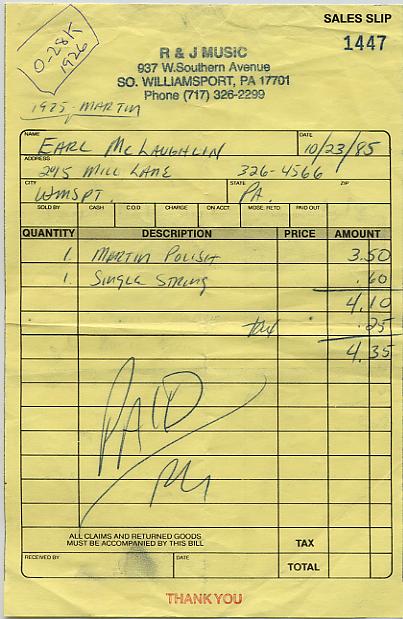 SALES SLIP
1447
0-28K
1926
R & J MUSIC
937 W.Southern Avenue
SO. WILLIAMSPORT, PA 17701
Phone (717) 326-2299
1925 - MARTIN
NAME DATE
EARL McLAUGHLIN 10/23/85
ADDRESS
2915 MILL LANE 326-4566
CITY STATE ZIP
WMSPT. PA.
SOLD BY CASH C.O.D CHARGE ON ACCT. MDSE. RETD. PAID OUT
QUANTITY DESCRIPTION PRICE AMOUNT
1. MARTIN POLISH 3.50
1. SINGLE STRING .60
4.10
tax .25
4.35
PAID
ALL CLAIMS AND RETURNED GOODS
MUST BE ACCOMPANIED BY THIS BILL
TAX
RECEIVED BY DATE
TOTAL
THANK YOU